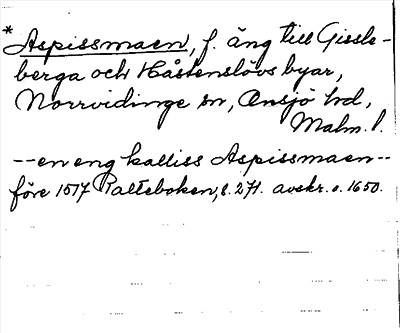 * Aspissmaen, f. äng till Gissle-
berga och Håstenslövs byar,
Norrvidinge sn, Onsjö hd,
Malm. l.
--en eng kalliss Aspissmaen--
före 1517 Palteboken, s. 271. avskr. o. 1650.